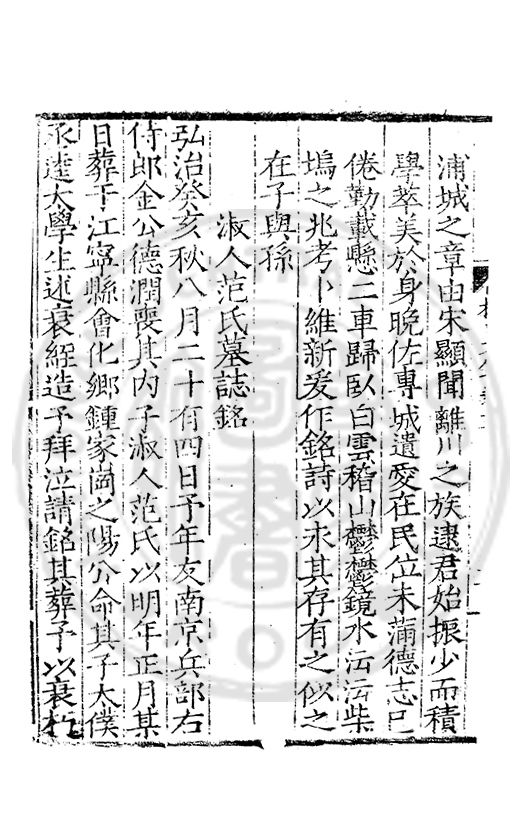 浦城之章由宋顯聞離川之族逮君始振少而積
學萃美於身晚佐專城遺愛在民位未蒲德志已
倦勤載懸二車歸臥白雲稽山鬱鬱鏡水沄沄柴
塢之兆考卜維新爰作銘詩以永其存有之似之
在子與孫
淑人范氏墓誌銘
弘治癸亥秋八月二十有四日予年友南京兵部右
侍郎金公德潤喪其内子淑人范氏以明年正月某
日葬于江寧縣會化鄉鍾家崗之陽公命其子大僕
丞逵太學生述衰絰造予拜泣請銘其葬予以衰朽